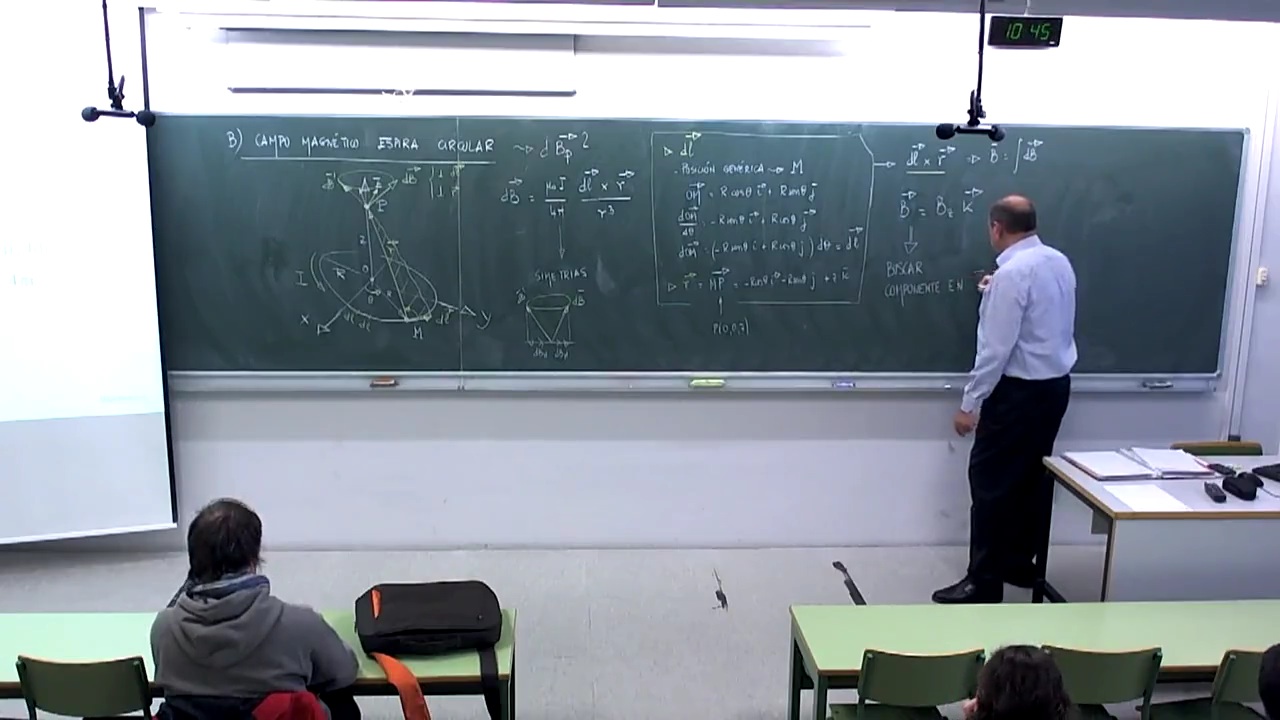 10 45
B) CAMPO MAGNÉTICO ESPIRA CIRCULAR ⇝ d B⃗p ?
dB⃗ = μ₀I/4π dl⃗ × r⃗/r³
SIMETRIAS
dB⃗
P
z
R
θ
I
x
y
M
dl dl
dl⃗
▷ dl⃗
- POSICIÓN GENÉRICA → M
OM⃗ = R cosθ i⃗ + R senθ j⃗
dOM⃗/dθ = -R senθ i⃗ + R cosθ j⃗
dOM⃗ = (-R senθ i + R cosθ j) dθ = dl⃗
▷ r⃗ = MP⃗ = -R cosθ i⃗ - R senθ j + z k⃗
P(0,0,z)
dl⃗ × r⃗ ⇒ B⃗ = ∫dB⃗
B⃗ = Bz k⃗
BUSCAR
COMPONENTE EN